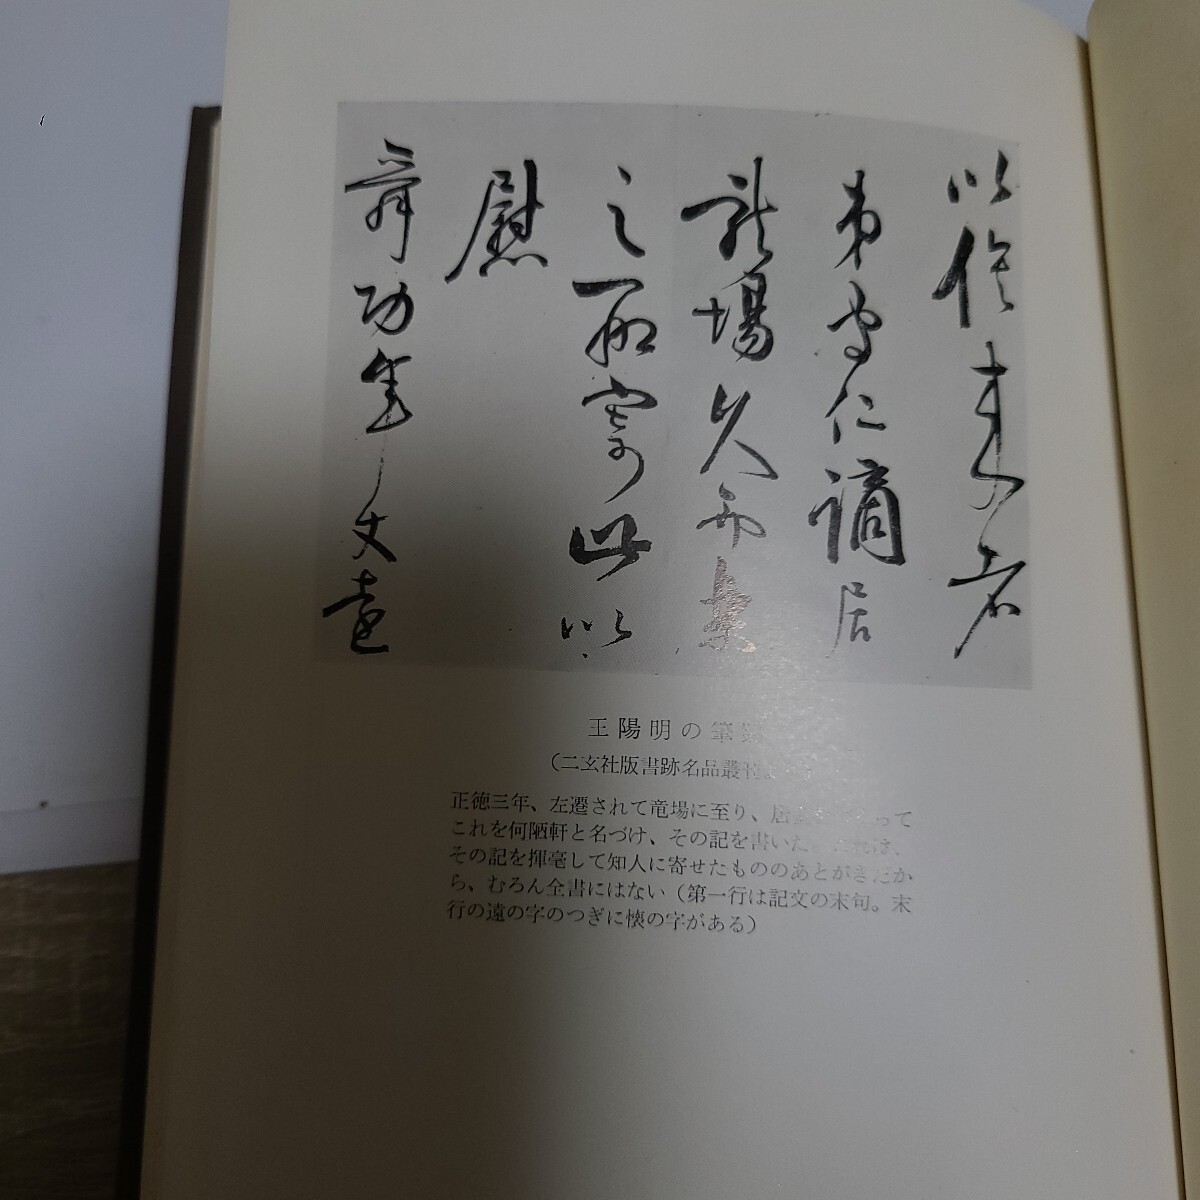 以俟来者
弟守仁謫居
龍場久而楽
之聊寄此以
慰
舜功年丈遠
王陽明の筆
（二玄社版書跡名品叢刊
正徳三年、左遷されて竜場に至り、居って
これを何陋軒と名づけ、その記を書いた
その記を揮毫して知人に寄せたもののあとがきだか
ら、むろん全書にはない（第一行は記文の末句。末
行の遠の字のつぎに懐の字がある）